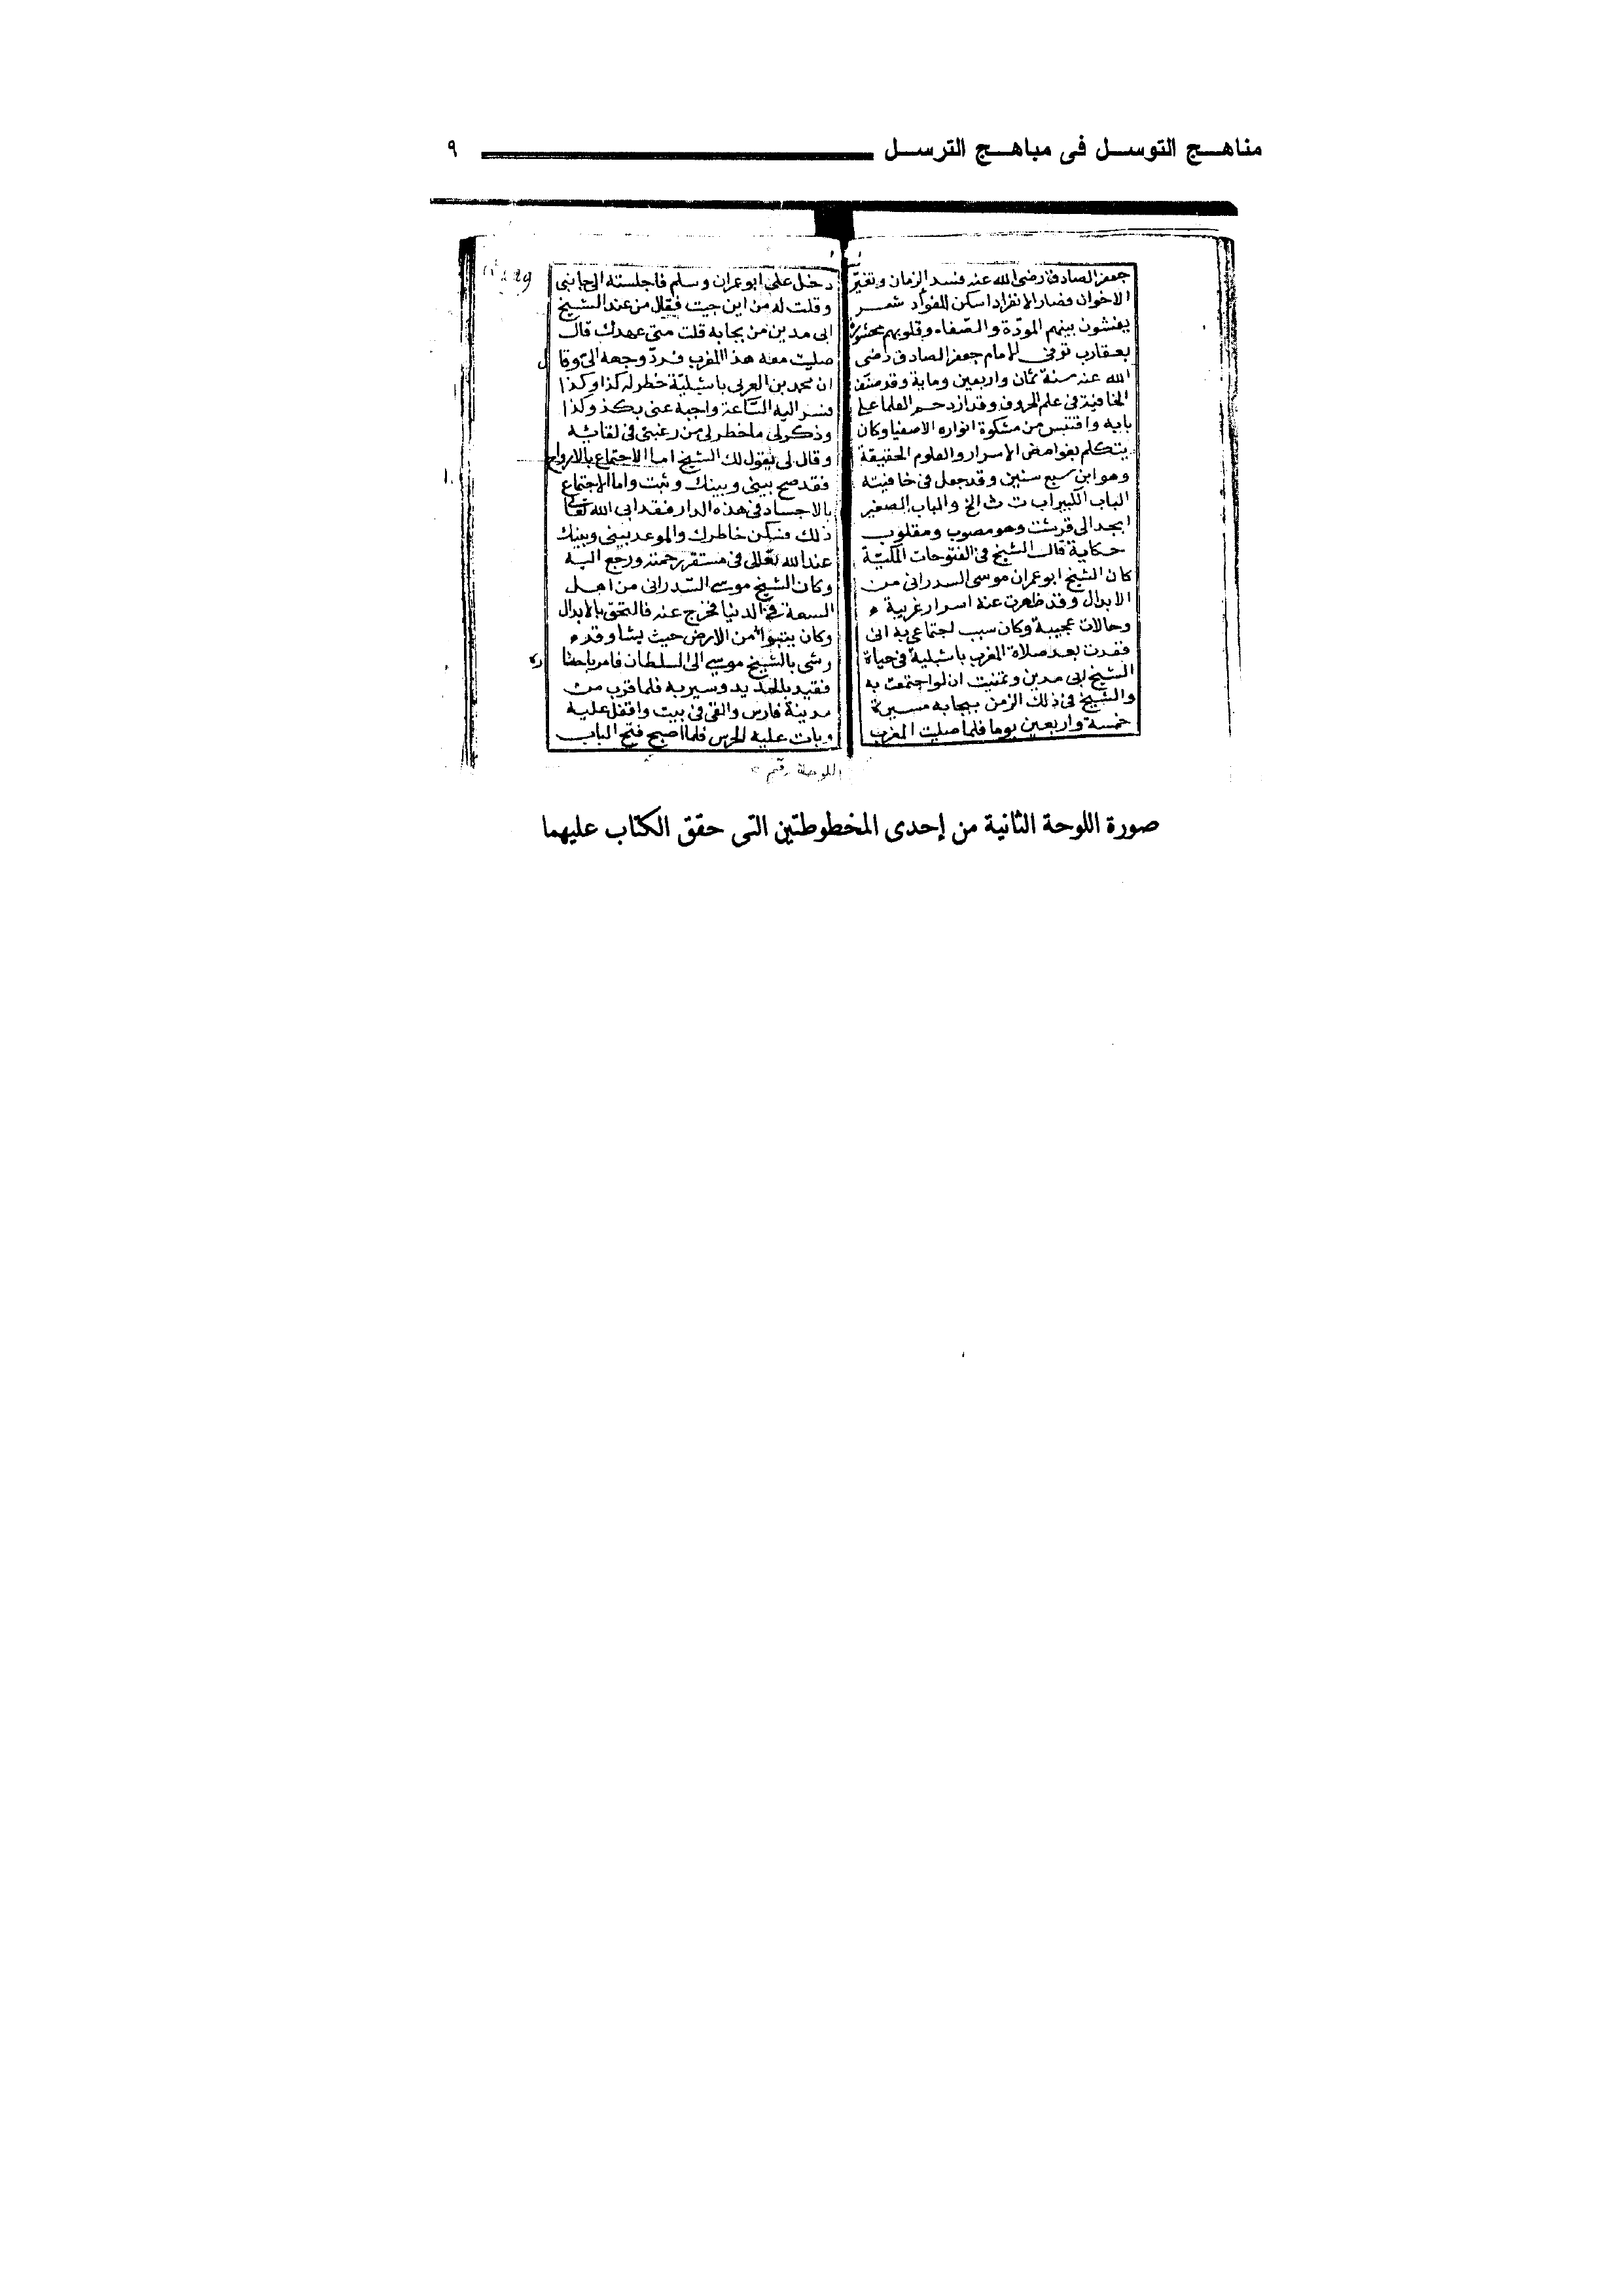 مناهـج التوسـل فى مباهـج الترسـل ٩
جعفر الصادق رضى الله عنه فسد الزمان وتغيّر
الاخوان فصار الانفراد اسكن للفؤاد شعر
يفشون بينهم المودّة والصّفاء وقلوبهم محشوة
بعقارب توفى الامام جعفر الصادق رضى
الله عنه سنة ثمان واربعين وماية وقد صنّف
الخافية فى علم الحروف وقد ازدحم العلما على
بابه واقتبس من مشكوة انواره الاصفيا وكان
يتكلم بغوامض الاسرار والعلوم الحقيقة
وهو ابن سبع سنين وقد جعل فى خافيته
الباب الكبير اب ت ث الخ والباب الصغير
ابجد الى قرشت وهو مصوب ومقلوب
حكاية قال الشيخ فى الفتوحات المكيّة
كان الشيخ ابو عمران موسى السدرانى من
الابدال وقد ظهرت عنه اسرار غريبة
وحالات عجيبة وكان سبب اجتماعى به انى
فقدت بعد صلاة المغرب باشبلية فى حياة
الشيخ ابى مدين وتمنيت ان لو اجتمعت به
والشيخ فى ذلك الزمن ببجايه مسيرة
خمسة واربعين يوما فلما صليت المغرب
دخل على ابو عمران وسلم فاجلسته الى جانبى
وقلت له من اين جيت فقال من عند الشيخ
ابى مدين من بجايه قلت متى عهدك قال
صليت معه هذا المغرب فردّ وجهه الىّ وقال
ان محمد بن العربى باشبليّة خطر له كذا وكذا
فسر اليه السّاعة واجبه عنى بكذ وكذا
وذكر لى ما خطر لى من رغبتى فى لقائه
وقال لى يقول لك الشيخ اما الاجتماع بالارواح
فقد صح بينى وبينك وثبت واما الاجتماع
بالاجساد فى هذه الدار فقد ابى الله تعالى
ذلك فسكن خاطرك والموعد بينى وبينك
عند الله تعالى فى مستقر رحمته ورجع اليه
وكان الشيخ موسى السّدرانى من اهل
السعة فى الدنيا فخرج عنه فالتحق بالابدال
وكان يتبوأ من الارض حيث يشا وقد
وشى بالشيخ موسى الى السلطان فامر باحضا
ره
فقيد بالحديد وسير به فلما قرب من
مدينة فارس والقى فى بيت واقفل عليه
وبات عليه الحرس فلما اصبح فتح الباب
اللوحة رقم
صورة اللوحة الثانية من إحدى المخطوطتين التى حقق الكتاب عليهما